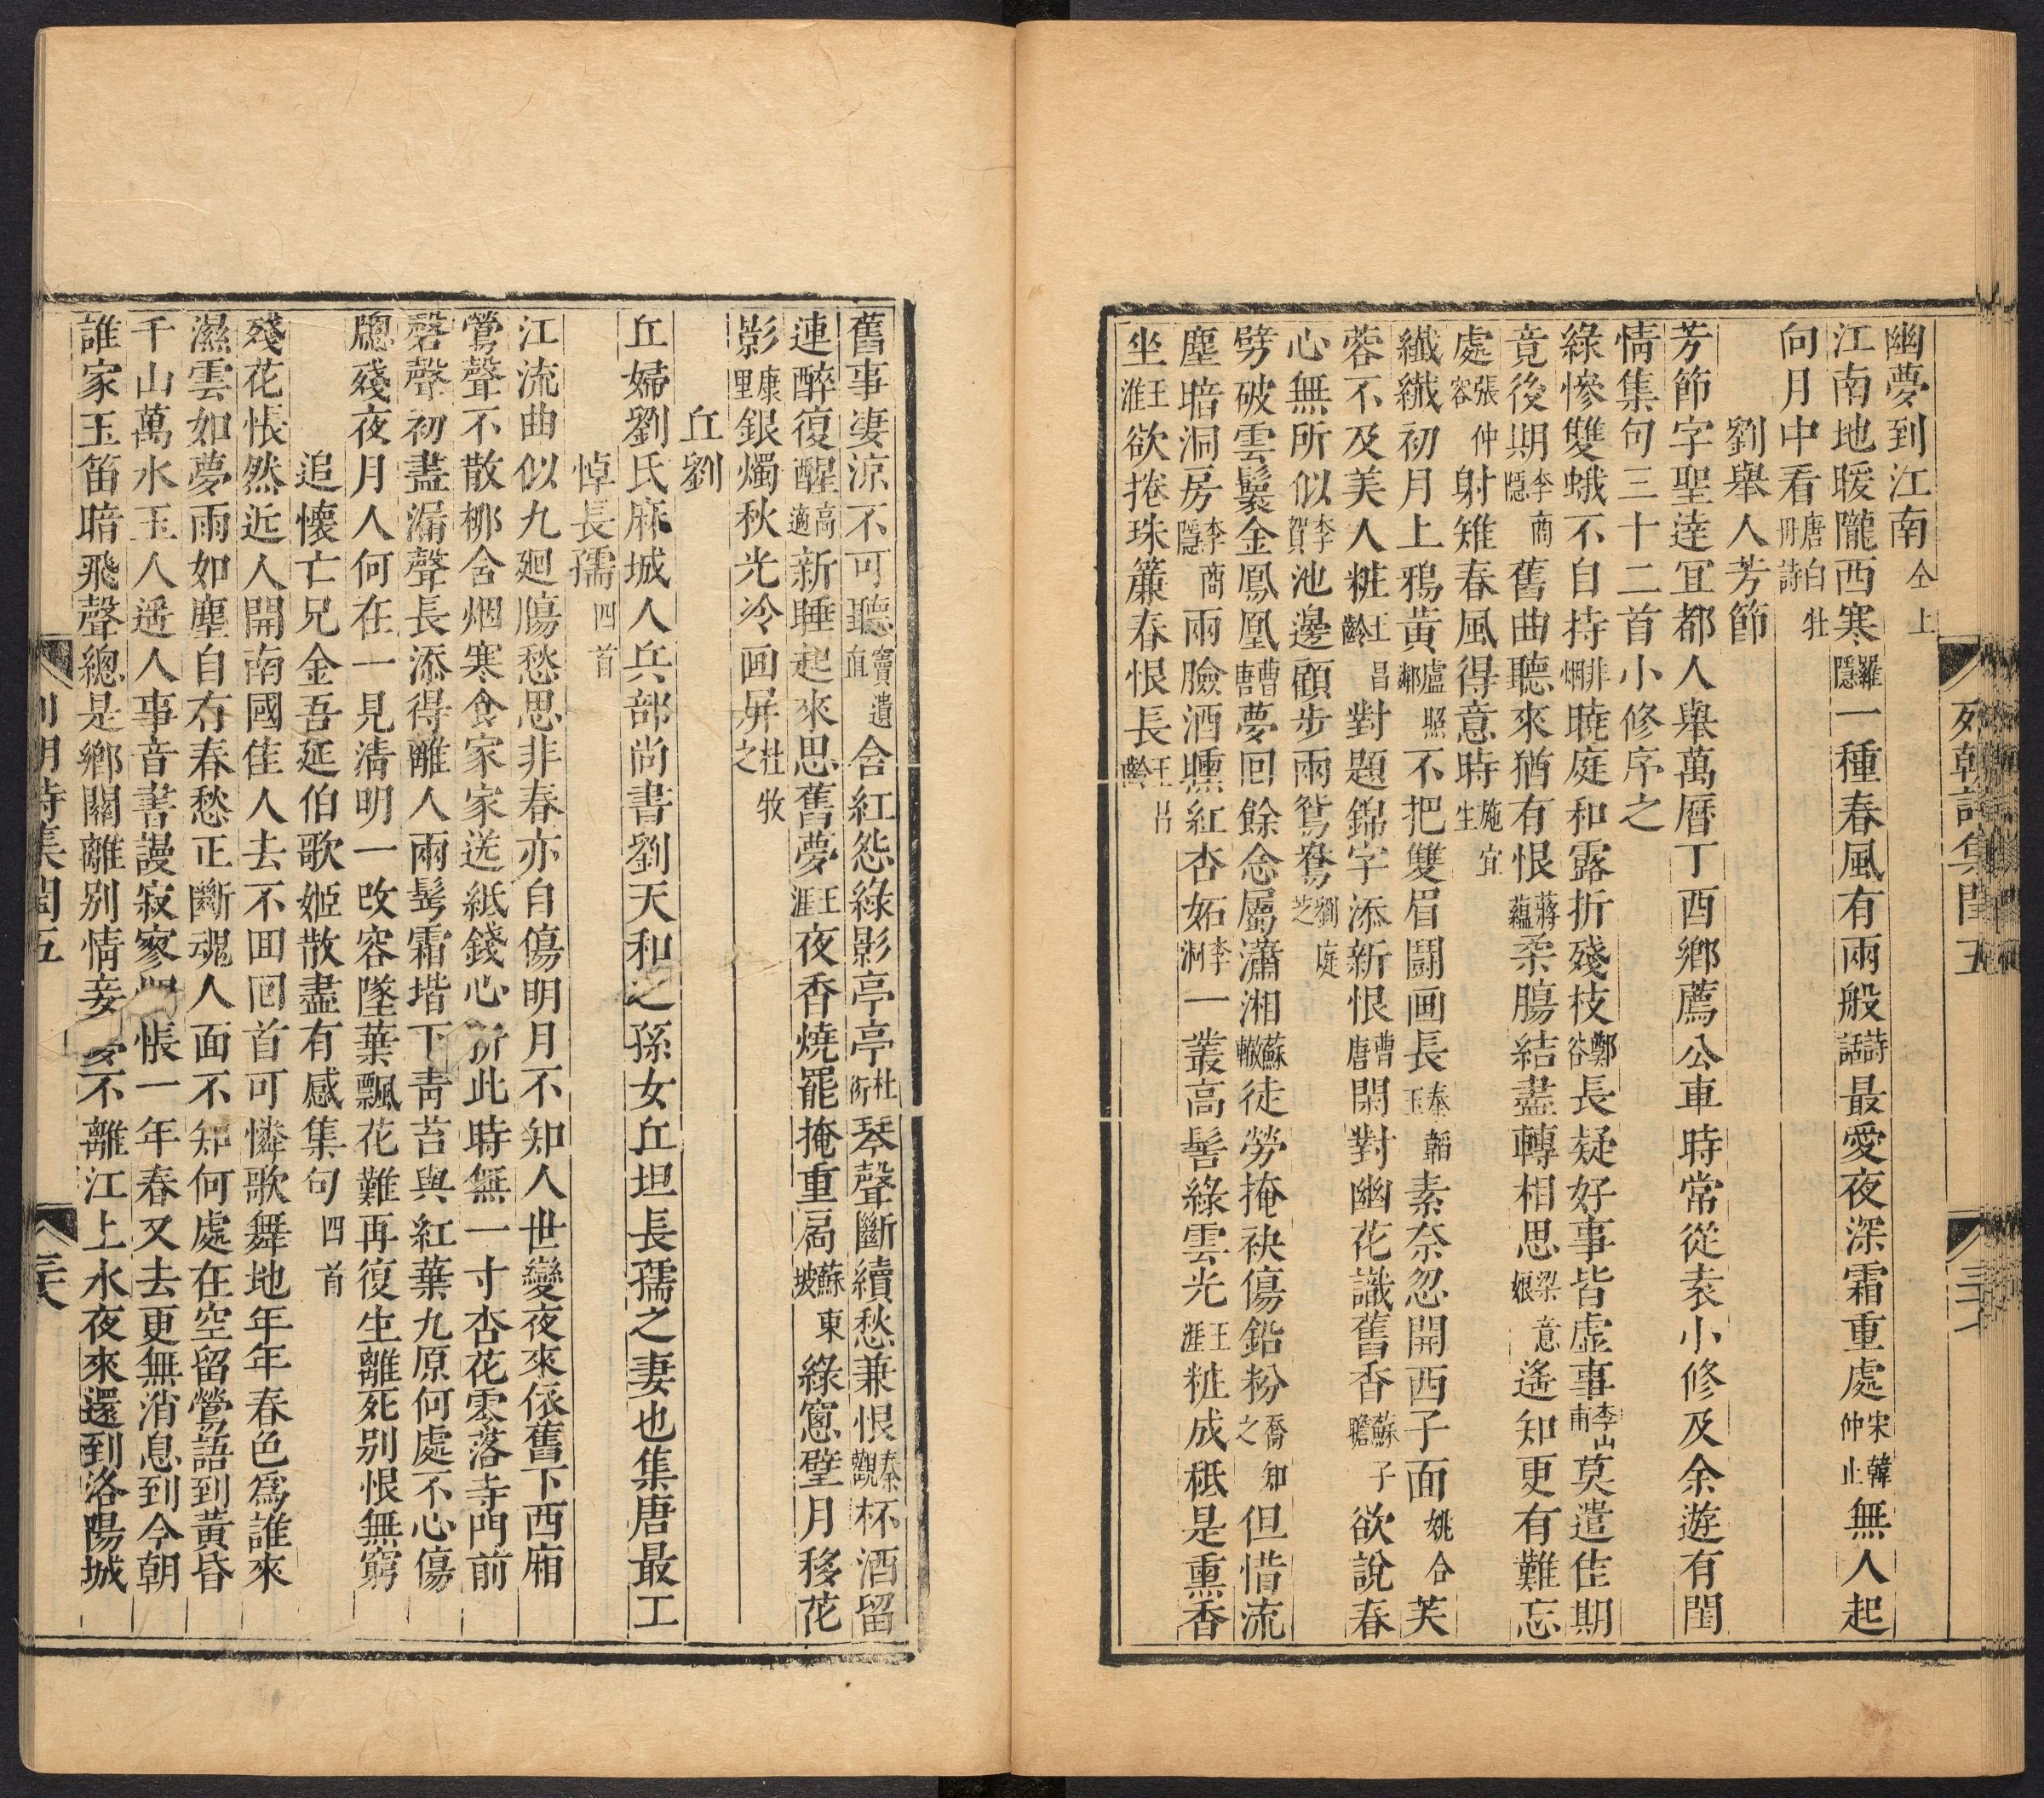 幽夢到江南仝上
江南地暖隴西寒羅隱一種春風有兩般詩話最愛夜深霜重處宋韓仲止無人起
向月中看唐白牡冊詩
劉舉人芳節
芳節字聖逹冝都人舉萬曆丁酉鄉薦公車時常從袁小修及余遊有閨
情集句三十二首小修序之
綠慘雙蛾不自持非烟曉庭和露折殘枝鄭谷長疑好事皆虛事李山甫莫遣佳期
竟後期李商隱舊曲聽來猶有恨蔣蘊柔腸結盡轉相思梁意娘遙知更有難忘
處張仲容射雉春風得意時施宜生
纖纖初月上鴉黃盧照鄰不把雙眉鬪画長秦韜玉素奈忽開西子面姚合芙
蓉不及美人粧王昌齡對題錦字添新恨曹唐閑對幽花識舊香蘇子瞻欲說春
心無所似李賀池邊顧步兩鴛鴦劉庭芝
劈破雲鬟金鳳凰曹唐夢回餘念屬瀟湘蘇轍徒勞掩袂傷鉛粉喬知之但惜流
塵暗洞房李商隱兩臉酒醺紅杏妬李洞一叢高髻綠雲光王涯粧成秪是熏香
坐王淮欲捲珠簾春恨長王昌齡
列朝詩集閏五
三十七
舊事凄涼不可聽竇遺直舍紅怨綠影亭亭杜衍琴聲斷續愁兼恨秦觀杯酒留
連醉復醒高適新睡起來思舊夢王涯夜香燒罷掩重扃蘇東坡綠窻璧月移花
影康里銀燭秋光冷画屏杜牧之
丘劉
丘婦劉氏麻城人兵部尚書劉天和之孫女丘坦長孺之妻也集唐最工
悼長孺四首
江流曲似九廻膓愁思非春亦自傷明月不知人世變夜來依舊下西廂
鶯聲不散柳含烟寒食家家送紙錢心折此時無一寸杏花零落寺門前
磬聲初盡漏聲長添得離人兩髩霜堦下靑苔與紅葉九原何處不心傷
牕殘夜月人何在一見淸明一攺容墜葉飄花難再復生離死别恨無窮
追懷亡兄金吾延伯歌姬散盡有感集句四首
殘花悵然近人開南國佳人去不囬回首可憐歌舞地年年春色爲誰來
濕雲如夢雨如塵自有春愁正斷魂人面不知何處在空留鶯語到黃昏
千山萬水玉人遥人事音書謾寂寥惆悵一年春又去更無消息到今朝
誰家玉笛暗飛聲總是鄉關離别情妾不離江上水夜來還到洛陽城
列朝詩集閏五
三十八